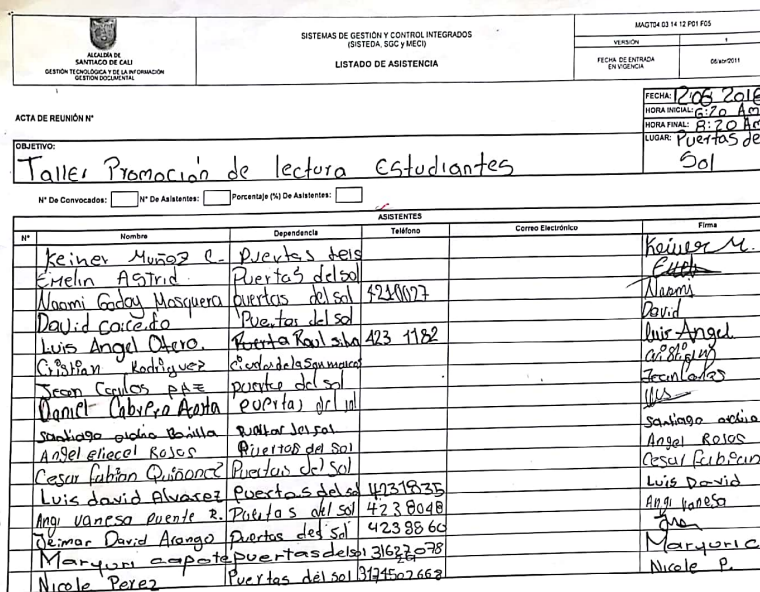 ALCALDÍA DE
SANTIAGO DE CALI
GESTIÓN TECNOLÓGICA Y DE LA INFORMACIÓN
GESTIÓN DOCUMENTAL
SISTEMAS DE GESTIÓN Y CONTROL INTEGRADOS
(SISTEDA, SGC y MECI)
LISTADO DE ASISTENCIA
MAGT04 03 14 12 P01 F05
VERSIÓN 1
FECHA DE ENTRADA
EN VIGENCIA
06/abr/2011
ACTA DE REUNIÓN N°
FECHA: 12 05 2016
HORA INICIAL: 6:20 Am
HORA FINAL: 8:20 Am
LUGAR: Puertas del
Sol
OBJETIVO:
Taller Promoción de lectura Estudiantes
N° De Convocados: N° De Asistentes: Porcentaje (%) De Asistentes:
ASISTENTES
N° Nombre Dependencia Teléfono Correo Electrónico Firma
Keiner Muñoz C. puertas Keiner M.
Emelin Astrid Puertas del sol
Naomi Goday Mosquera puertas del sol 4210027 Naomi
David caicedo Puertas del sol David
Luis Angel Otero. Puerta Raul silva 423 1182 luis Angel
Cristian Rodriguez
Jean Carlos PAZ puerta del sol Jean Carlos
Daniel Cabrera Acosta puertas del sol
Santiago Bonilla Santiago
Angel eliecel Rosos Puertas del sol Angel Rosos
Cesar fabian Quiñonez Puertas del sol Cesar fabian
Luis david Alvarez Puertas del sol 4231835 Luis David
Angi vanesa puente R. Puertas del sol 4238048 Angi vanesa
Jeimar David Arango puertas del sol 4238860
Maryuri capote puertas del sol Maryuri C
Nicole Perez Puertas del sol 3174502668 Nicole P.